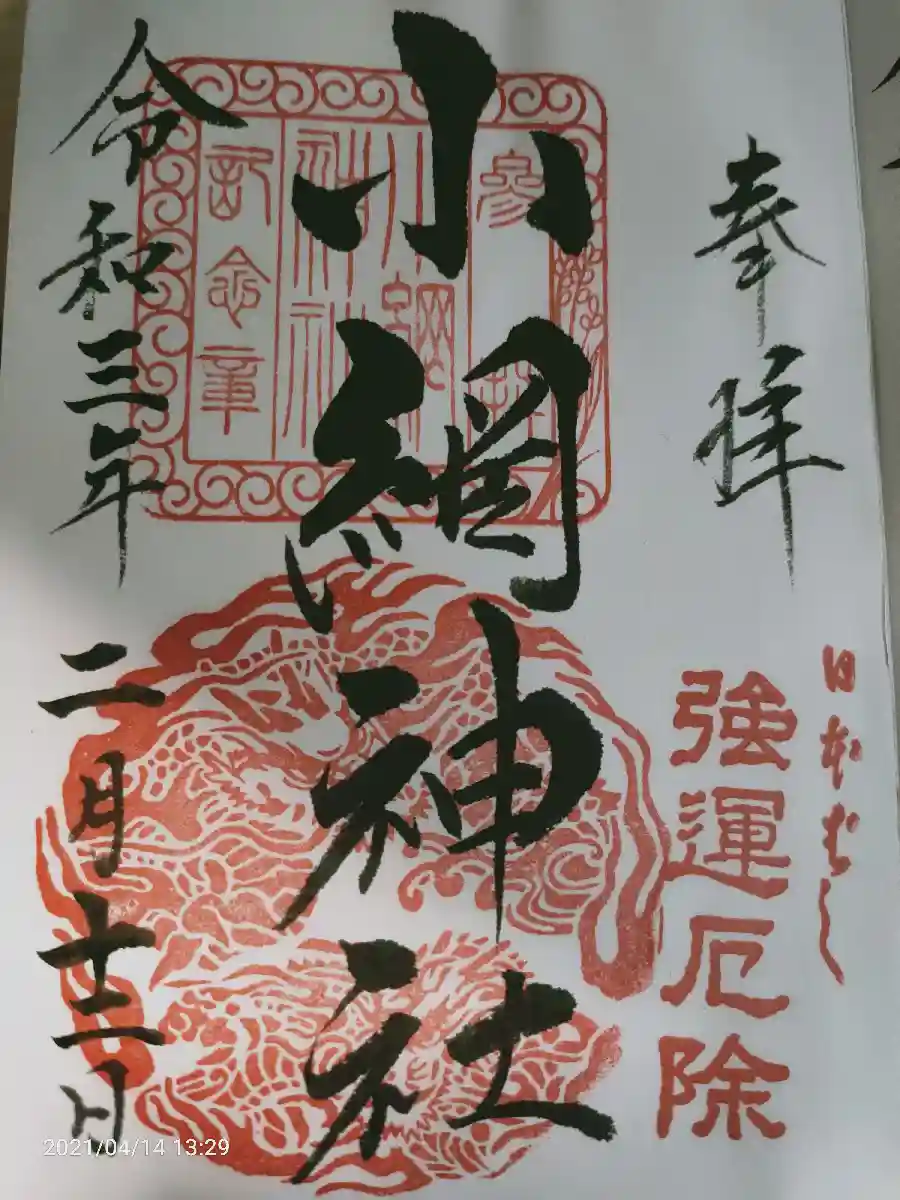 奉拝
日本ばし
強運厄除
小網神社
参拝
小網神社
記念章
令和三年二月十二日
2021/04/14 13:29